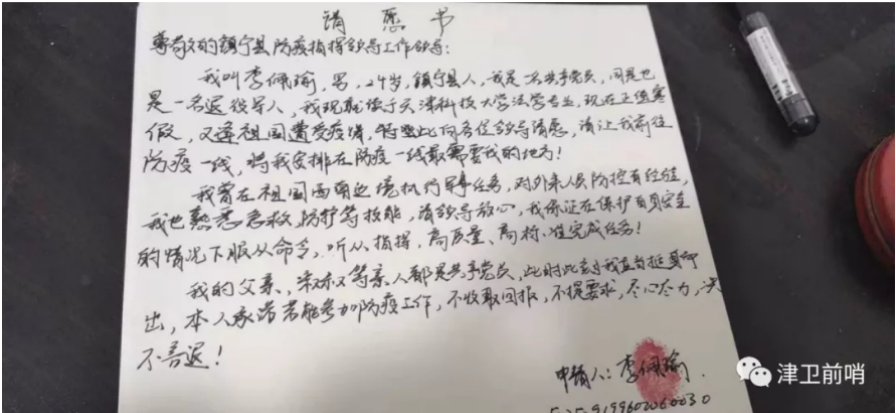 请愿书
尊敬的镇宁县防疫指挥领导工作领导:
我叫李佩瑜,男,24岁,镇宁县人,我是一名共产党员,同是也
是一名退役军人,我现就读于天津科技大学法学专业,现在正值寒
假,又逢祖国遭受疫情,特此向各位领导请愿,请让我前往
防疫一线,将我安排在防疫一线最需要我的地方!
我曾在祖国西南边境执行军事任务,对外来人员防控有经验,
我也熟悉急救、防护等技能,请领导放心,我保证在保护自身安全
的情况下服从命令、听从指挥,高质量、高标准完成任务!
我的父亲、叔叔等亲人都是共产党员,此时此刻我应当挺身而
出,本人承诺若能参加防疫工作,不收取回报,不提要求,尽心尽力,决
不言退!
申请人:李佩瑜
津卫前哨